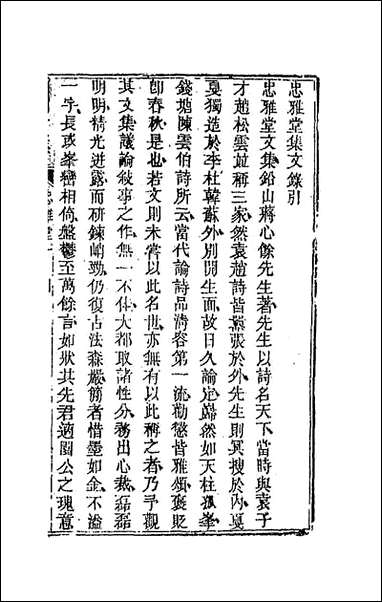 忠雅堂集文錄引
忠雅堂文集鉛山蔣心餘先生著先生以詩名天下當時與袁子
才趙松雲並稱三家然袁趙詩皆囂張於外先生則冥搜於內戛
戛獨造於李杜韓蘇外別開生面故日久論定巋然如天柱孤峯
錢塘陳雲伯詩所云當代論詩品清容第一流勸懲皆雅頌褒貶
卽春秋是也若文則未嘗以此名世亦無有以此稱之者乃予觀
其文集議論敍事之作無一不佳大都取諸性分務出心裁磊磊
明明精光迸露而研鍊峭勁仍復古法森嚴簡者惜墨如金不溢
一字長或峯巒相倚盤鬱至萬餘言如狀其先君適園公之瑰意